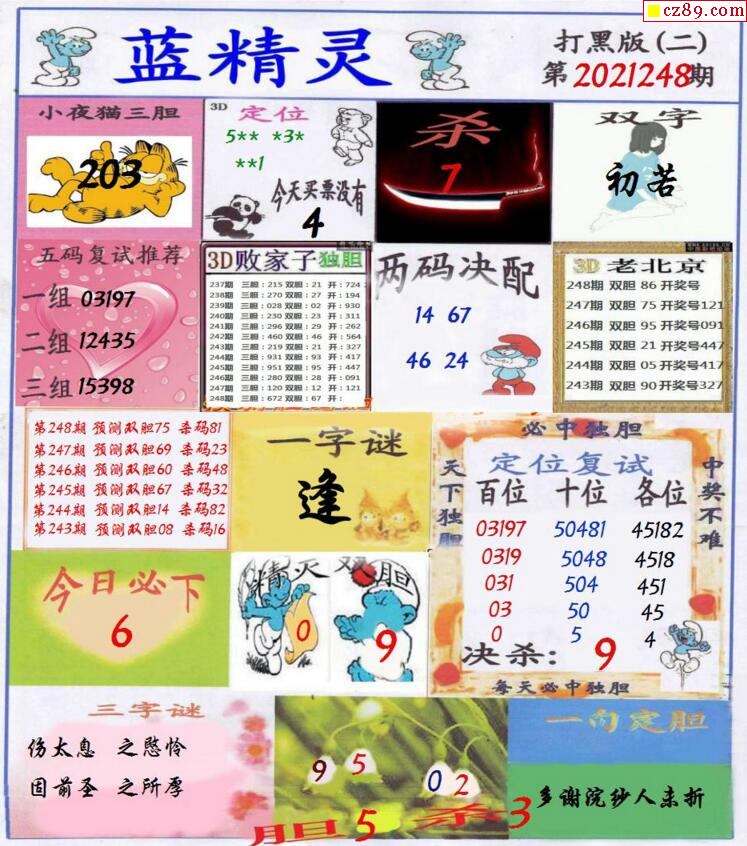 cz89.com
蓝精灵
打黑版(二)
第2021248期
小夜猫三胆
203
3D 定位
5** *3*
**1
今天买票没有
4
杀
7
双字
初苦
五码复试推荐
一组 03197
二组 12435
三组 15398
3D败家子独胆
237期 三胆:215 双胆:21 开:724
238期 三胆:270 双胆:27 开:194
239期 三胆:028 双胆:02 开:930
240期 三胆:230 双胆:23 开:311
241期 三胆:296 双胆:29 开:262
242期 三胆:460 双胆:46 开:564
243期 三胆:219 双胆:21 开:327
244期 三胆:931 双胆:93 开:417
245期 三胆:951 双胆:95 开:447
246期 三胆:280 双胆:28 开:091
247期 三胆:120 双胆:12 开:121
248期 三胆:672 双胆:67 开:
两码决配
14 67
46 24
3D 老北京
248期 双胆 86 开奖号
247期 双胆 75 开奖号121
246期 双胆 95 开奖号091
245期 双胆 21 开奖号447
244期 双胆 05 开奖号417
243期 双胆 90 开奖号327
第248期 预测双胆75 杀码81
第247期 预测双胆69 杀码23
第246期 预测双胆60 杀码48
第245期 预测双胆67 杀码32
第244期 预测双胆14 杀码82
第243期 预测双胆08 杀码16
一字谜
逢
必中独胆
天下独胆
中奖不难
定位复试
百位 十位 各位
03197 50481 45182
0319 5048 4518
031 504 451
03 50 45
0 5 4
决杀: 9
每天必中独胆
今日必下
6
精灵 双胆
0 9
三字谜
伤太息 之愍怜
固前圣 之所厚
9 5 0 2
胆 5 杀 3
一句定胆
多谢浣纱人未折